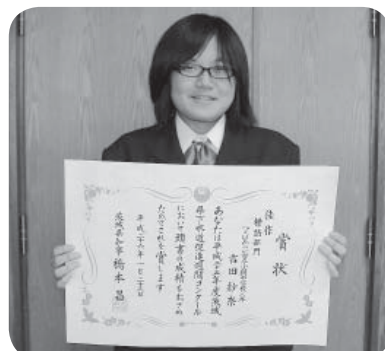 賞状
佳作
標語部門
吉田 紗奈
あなたは平成二十五年度茨城
県下水道促進週間コンクール
において頭書の成績をおさめ
たのでこれを賞します
平成二十六年一月二十五日
茨城県知事 橋本 昌